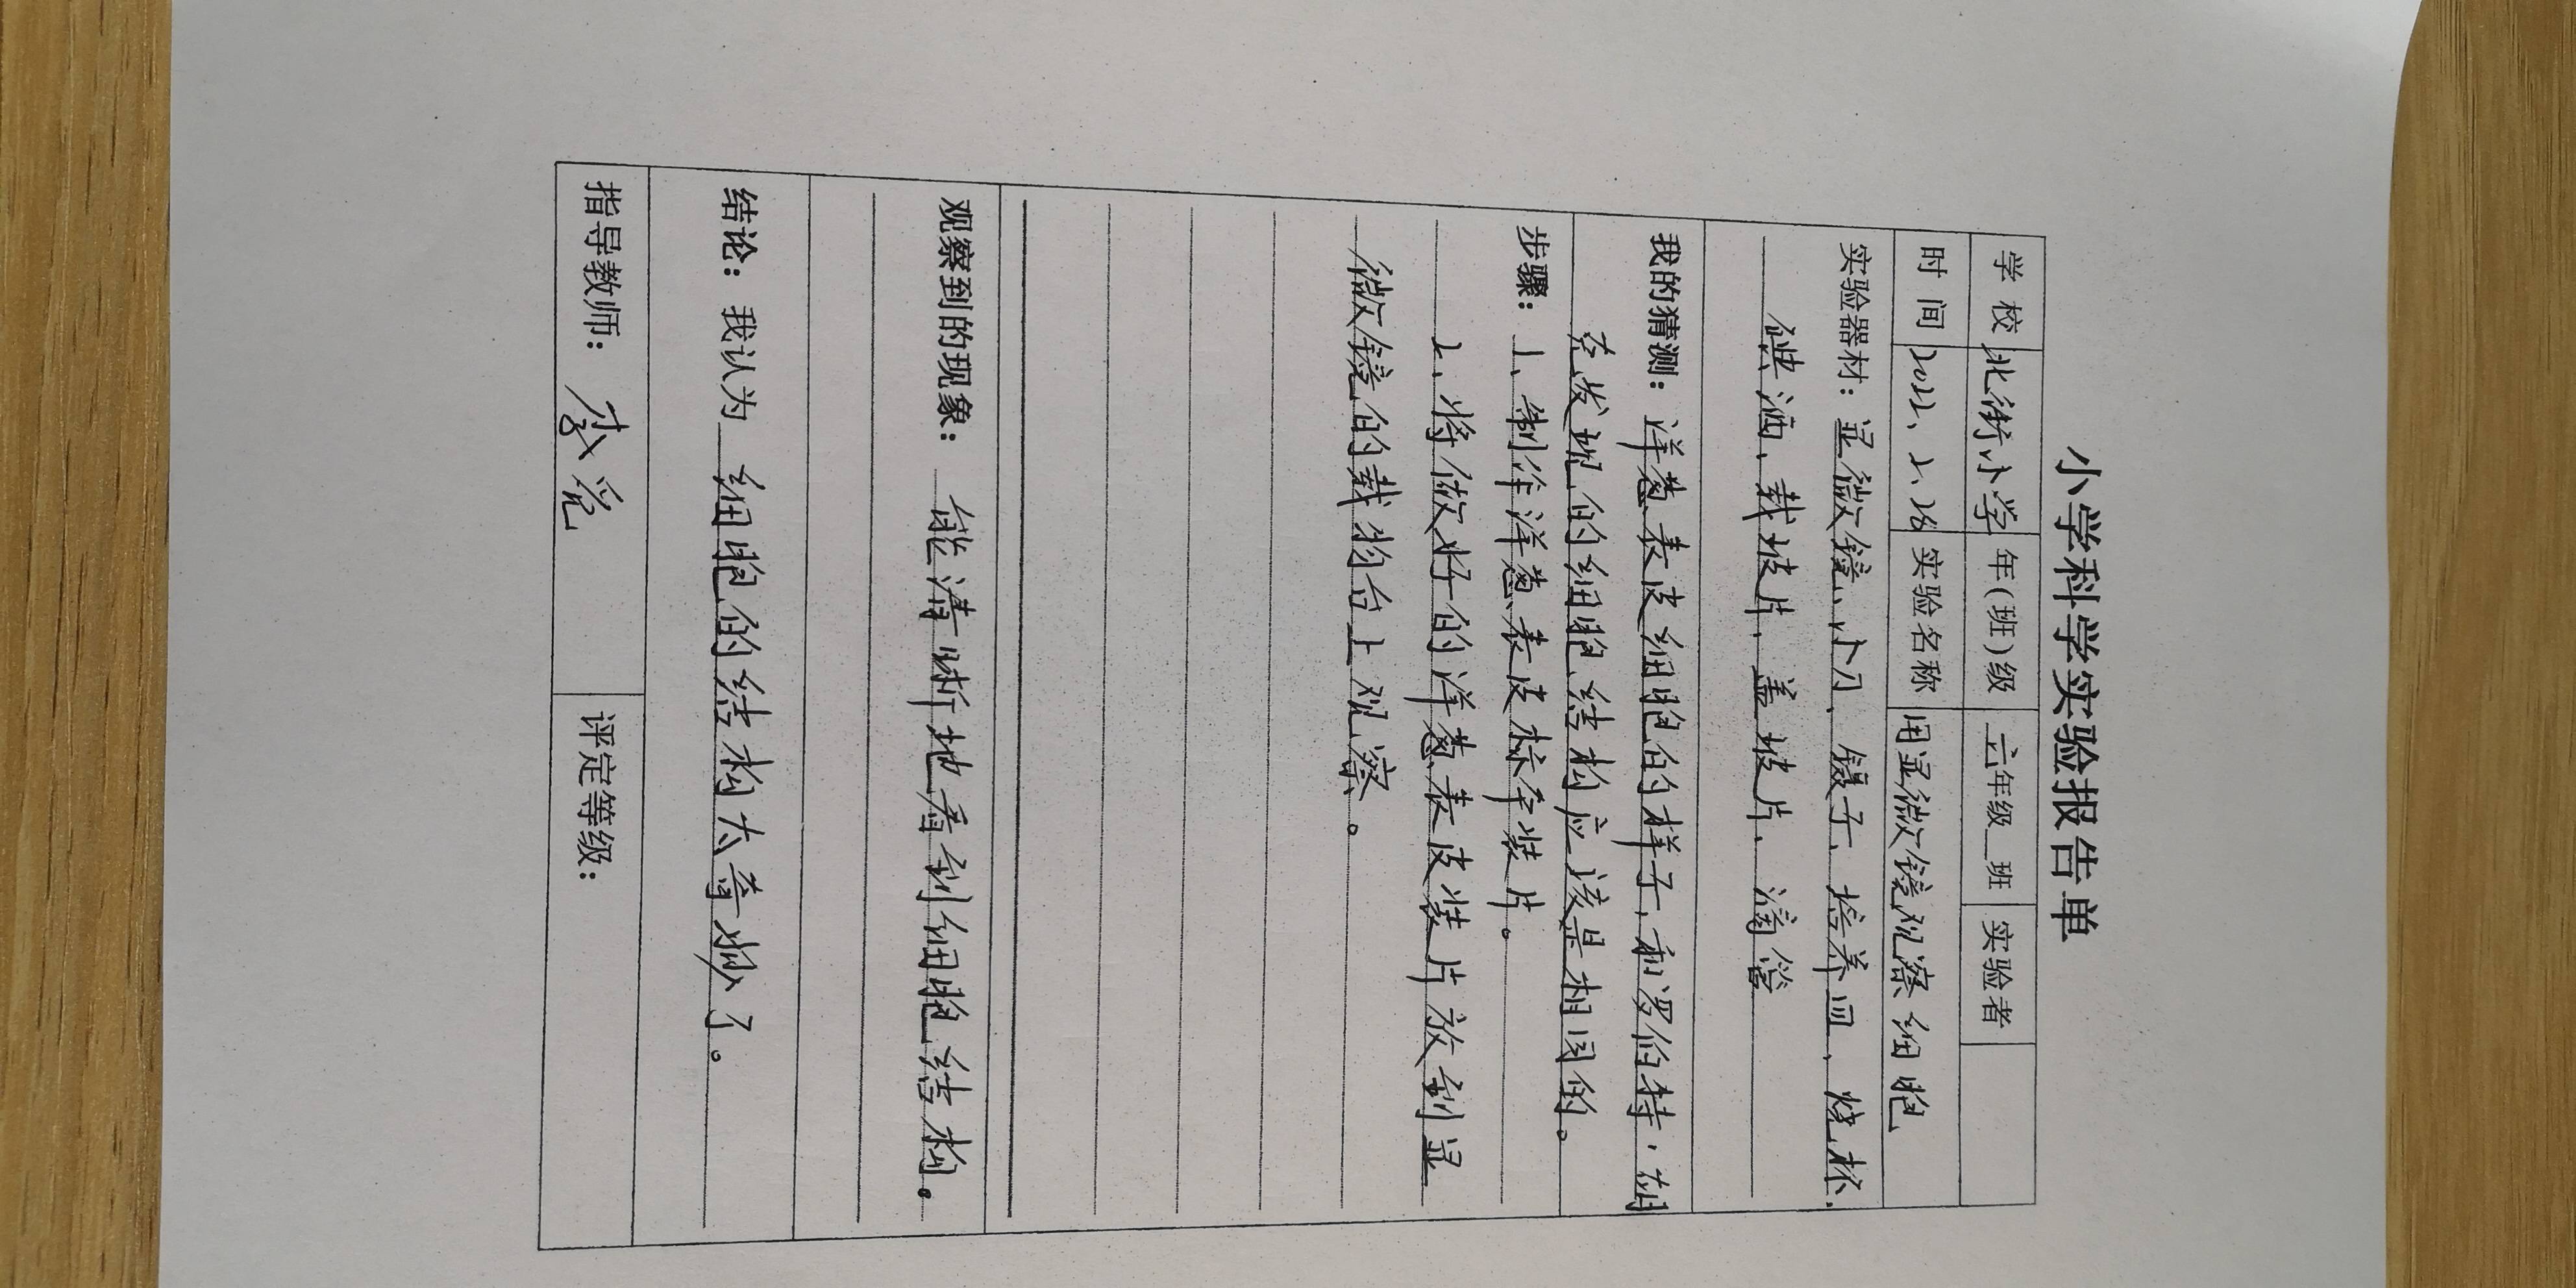 小学科学实验报告单
学 校 北街小学 年(班)级 六年级 班 实验者
时 间 2022、2、26 实验名称 用显微镜观察细胞
实验器材: 显微镜、小刀、镊子、培养皿、烧杯、
碘酒、载玻片、盖玻片、滴管
我的猜测: 洋葱表皮细胞的样子,和罗伯特·胡
克发现的细胞结构应该是相同的。
步骤: 1、制作洋葱表皮标本装片。
2、将做好的洋葱表皮装片放到显
微镜的载物台上观察。
观察到的现象: 能清晰地看到细胞结构。
结论: 我认为 细胞的结构太奇妙了。
指导教师: 评定等级: